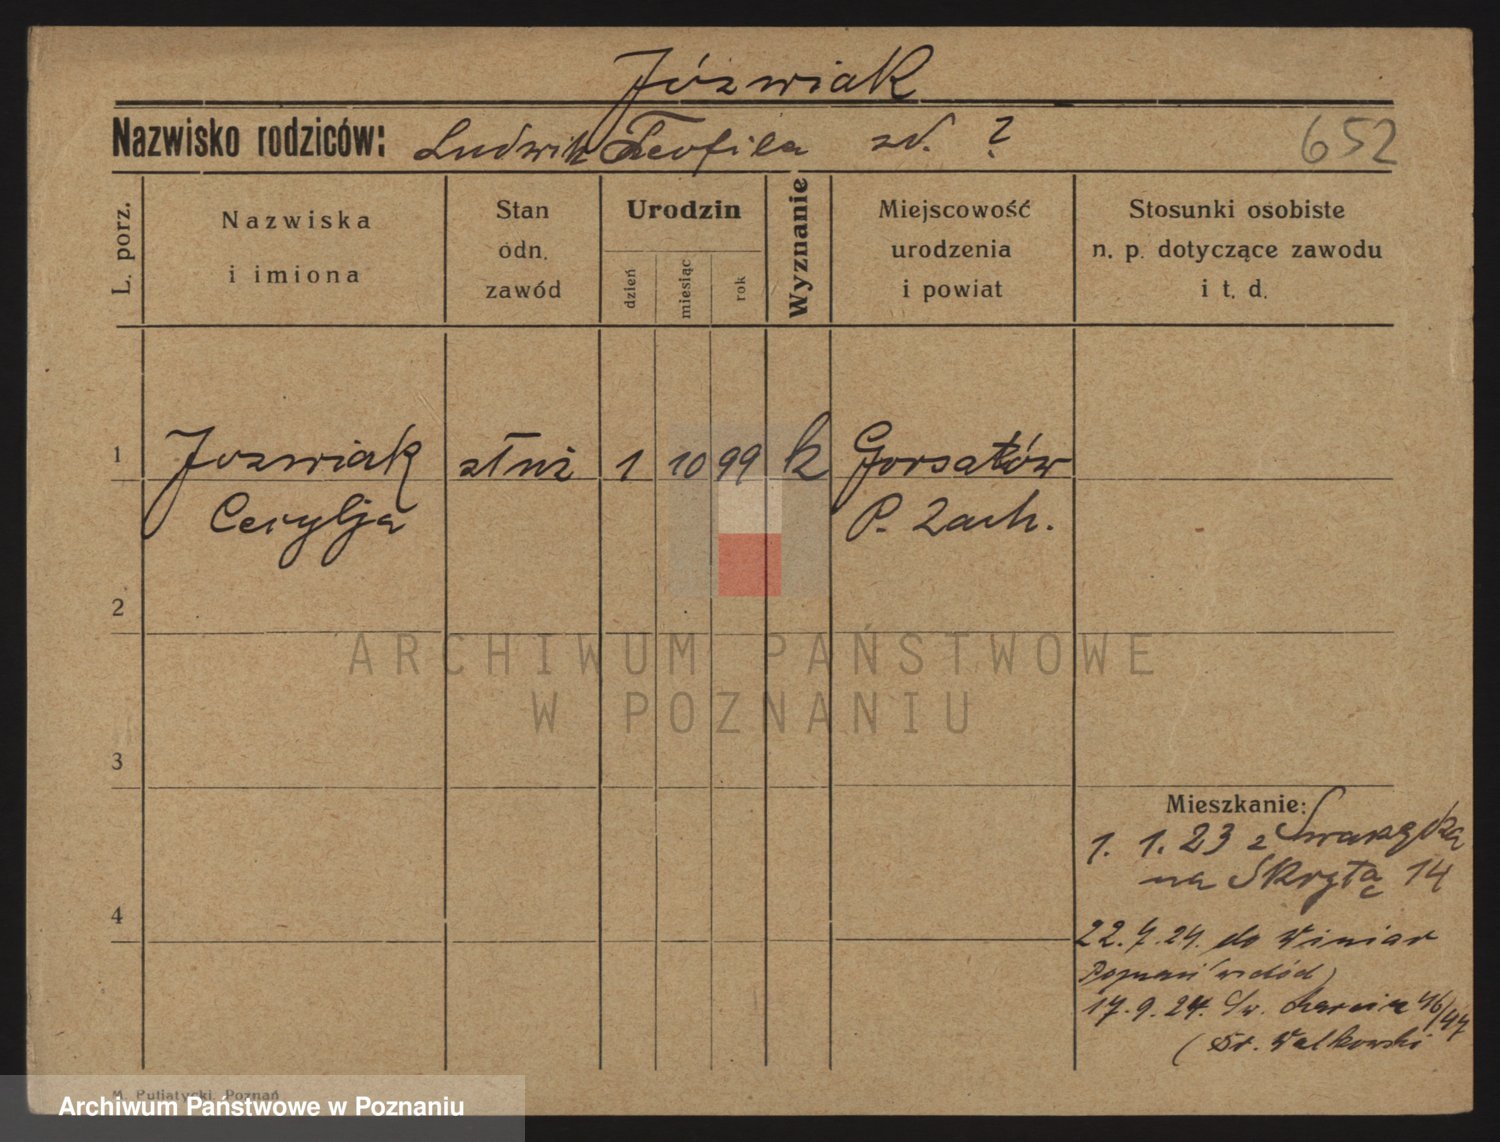 Józwiak
Nazwisko rodziców: Ludwik Teofila zd. ?
652
L. porz.
Nazwiska
i imiona
Stan
odn.
zawód
Urodzin
dzień
miesiąc
rok
Wyznanie
Miejscowość
urodzenia
i powiat
Stosunki osobiste
n. p. dotyczące zawodu
i t. d.
1 Jozwiak służ 1 10 99 k Gorsatów
Cecylja P. Zach.
2
ARCHIWUM PAŃSTWOWE
W POZNANIU
3
Mieszkanie:
1. 1. 23 z Swarzędza
na Skrytą 14
4
22. 7. 24. do Winiar
Poznań
17. 9. 24. Św. Marcin 46/47
(Dr. Walkowski
M. Putiatycki, Poznań
Archiwum Państwowe w Poznaniu